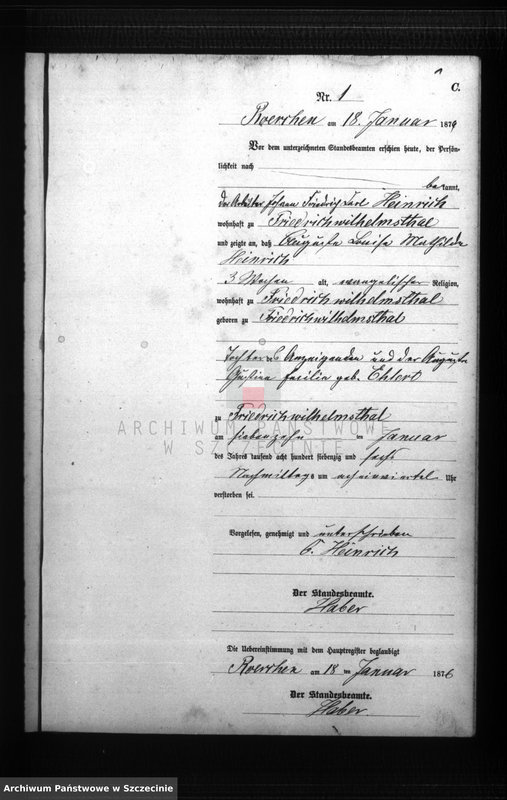 C.
Nr. 1
Roerchen am 18. Januar 1876
Vor dem unterzeichneten Standesbeamten erschien heute, der Persön-
lichkeit nach
bekannt,
der Arbeiter Johann Friedrich Carl Heinrich
wohnhaft zu Friedrichwilhelmsthal
und zeigte an, daß Auguste Louise Mathilde
Heinrich
3 Wochen alt, evangelischer Religion,
wohnhaft zu Friedrichwilhelmsthal
geboren zu Friedrichwilhelmsthal
Tochter des Anzeigenden und der Auguste
Cecilie geb. Ehlert
zu Friedrichwilhelmsthal
am siebenzehn ten Januar
des Jahres tausend acht hundert siebenzig und sechs
Nachmittags um Uhr
verstorben sei.
Vorgelesen, genehmigt und unterschrieben
C. Heinrich
Der Standesbeamte.
Haber
Die Uebereinstimmung mit dem Hauptregister beglaubigt
Roerchen am 18 ten Januar 1876
Der Standesbeamte.
Haber.
ARCHIWUM PAŃSTWOWE
W SZCZECINIE
Archiwum Państwowe w Szczecinie